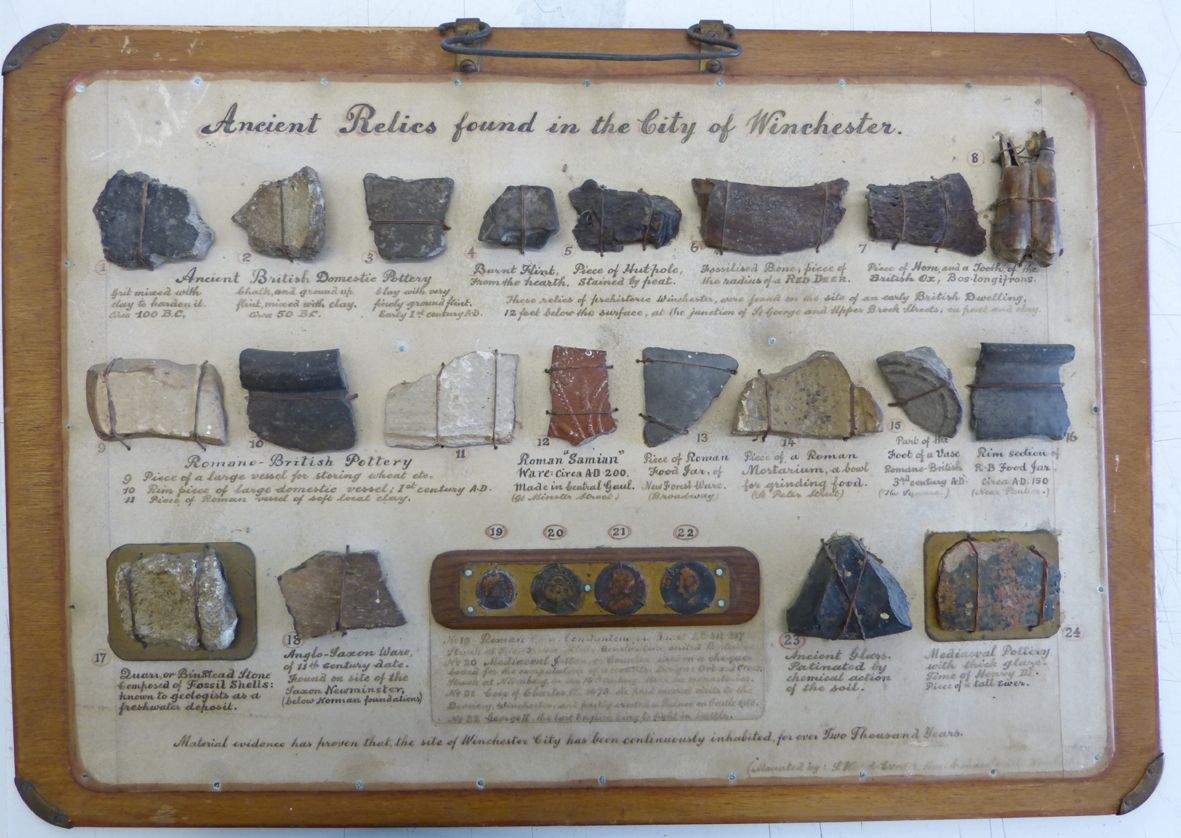 Ancient Relics found in the City of Winchester.
8
1
2
3
4
5
6
7
Ancient British Domestic Pottery
Grit mixed with
clay to harden it.
Circa 100 B.C.
Chalk, and ground up
flint, mixed with clay.
Circa 50 B.C.
Clay with very
finely ground flint.
Early 1st century A.D.
Burnt Flint,
From the hearth.
Piece of Hutpole,
Stained by peat.
Fossilised Bone, piece of
the radius of a RED DEER.
Piece of Horn, and a Tooth, of the
British Ox, Bos-longifrons.
These relics of prehistoric Winchester, were found on the site of an early British Dwelling,
12 feet below the surface, at the junction of St George and Upper Brook Streets, on peat and clay.
9
10
11
12
13
14
15
16
Romano-British Pottery
9 Piece of a large vessel for storing wheat etc.
10 Rim piece of large domestic vessel; 1st century A.D.
11 Piece of Roman vessel of soft local clay.
Roman "Samian"
Ware. Circa A.D 200.
Made in Central Gaul.
(Gt Minster Street.)
Piece of Roman
Food Jar, of
New Forest Ware.
(Broadway)
Piece of a Roman
Mortarium, a bowl
for grinding food.
(St Peter Street)
Part of the
Foot of a Vase
Romano-British
3rd century A.D.
(The Square.)
Rim section of
R-B Food Jar.
Circa A.D. 150
19
20
21
22
17
18
23
24
Quarr, or Binstead Stone
Composed of Fossil Shells:
known to geologists as a
freshwater deposit.
Anglo-Saxon Ware,
of 11th century date.
Found on site of the
Saxon Newminster,
(below Norman foundations)
No 19 Roman
No 20 Mediaeval Jetton, or Counter
No 21
No 22 George II, the last English king to fight in battle.
Ancient Glass.
Patinated by
chemical action
of the soil.
Mediaeval Pottery
with thick glaze.
Time of Henry III.
Piece of a tall ewer.
Material evidence has proven that, the site of Winchester City has been continuously inhabited, for over Two Thousand Years.
Mounted by: